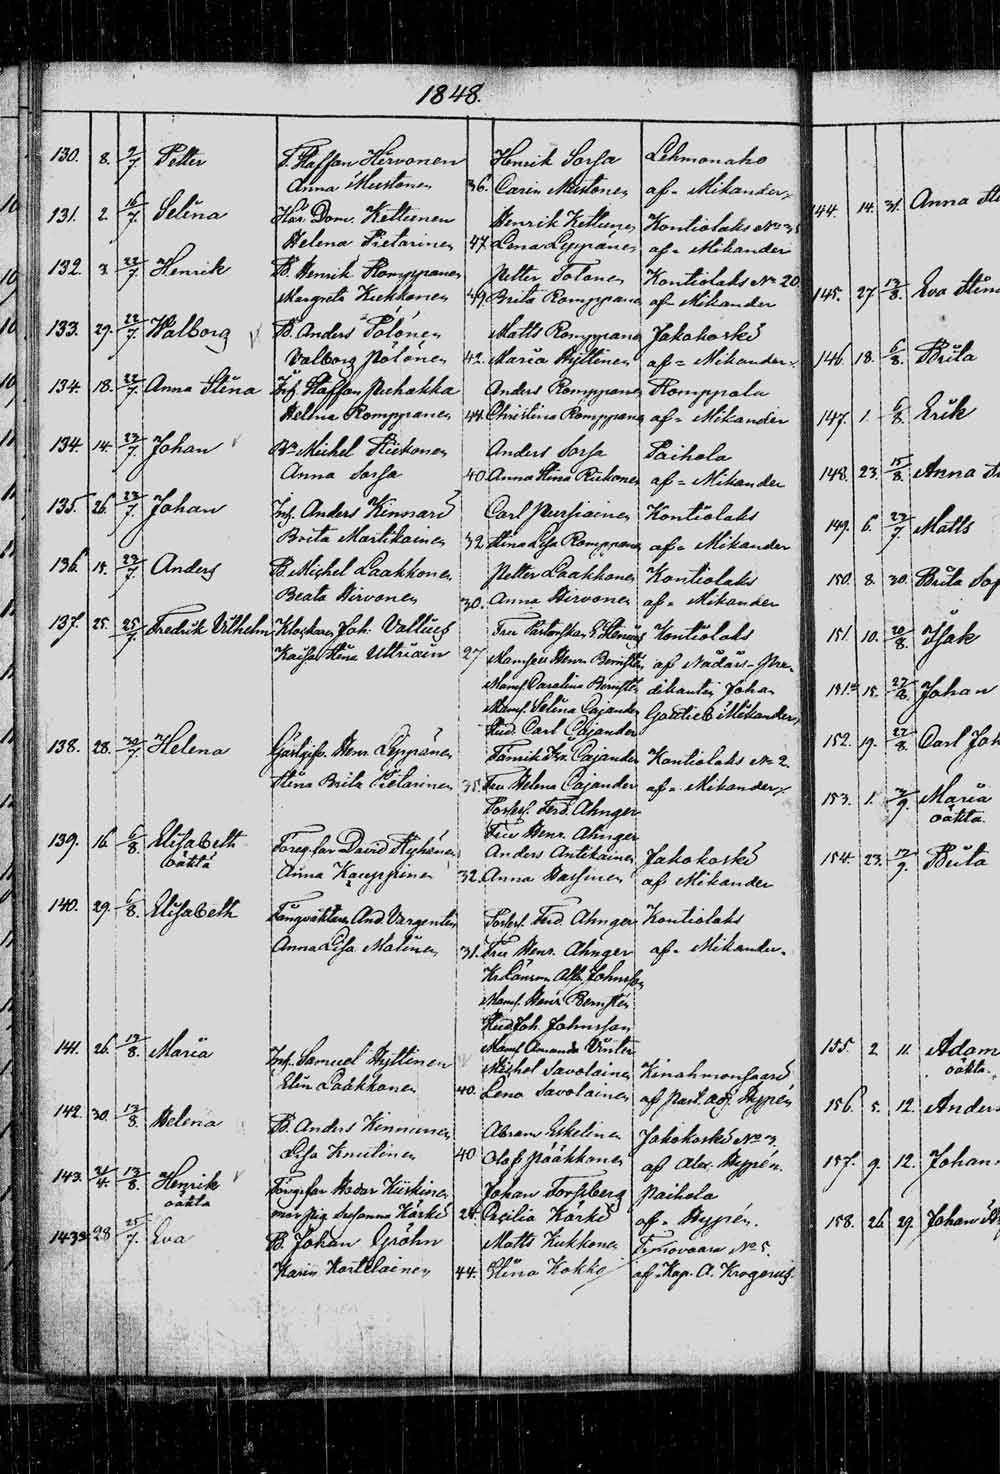 1848.
130. 8. 9/7 Petter T. Staffan Hirvonen Henrik Sorsa Lehmonaho
Anna Mustonen 36. Carin Mustonen af = Mikander
131. 2. 16/7 Selina Har. Dom. Kettunen Henrik Kettunen Kontiolaks No 35
Helena Pietarinen 47. Lena Leppänen af = Mikander
132. 3. 22/7 Henrik B. Henrik Romppanen Petter Tolonen Kontiolaks No 20
Margreta Kukkonen 49. Brita Romppanen af Mikander
133. 29. 22/7 Walborg B. Anders Pölönen Matts Romppanen Jakokoski
Valborg Pölönen 42. Maria Hyttinen af = Mikander
134. 18. 22/7 Anna Stina Inh. Staffan Puhakka Anders Romppanen Romppala
Helena Romppanen 44. Christina Romppanen af = Mikander
134. 14. 23/7 Johan Bn Michel Riikonen Anders Sorsa Paihola
Anna Sorsa 40 Anna Stina Riikonen af = Mikander
135. 26. 23/7 Johan Inh. Anders Kinnari Carl Pursiainen Kontiolaks
Brita Martikainen 32. Stina Lisa Romppanen af = Mikander
136. 15. 23/7 Anders B. Michel Laakkonen Petter Laakkonen Kontiolaks
Beata Hirvonen 30. Anna Hirvonen af = Mikander
137. 25. 25/7 Fredrik Vilhelm Klockaren Joh. Vallius Fru Pastorskan Kontiolaks
Kaisa Stina Uttriain 27 Mamsell Henr. af Nådårs-Pre-
Mams. Carolina dikanten Johan
Mams. Selina Cajander Gottlieb Mikander
Stud. Carl Cajander
138. 28. 30/7 Helena Gästgifv. Henr. Leppänen Fänrik Cajander Kontiolaks No 2
Stina Brita Pietarinen 35. Fru Helena Cajander af = Mikander
Ferd. Ahnger
Fru Henr. Ahnger
139. 16 6/8. Elisabeth Föregifvar David Anders Antikainen Jakokoski
oäkta Anna Kauppinen 32. Anna Hassinen af Mikander
140. 29. 6/8. Elisabeth Fångvaktaren And. Vargentin Ferd. Ahnger Kontiolaks
Anna Lisa Malinen 31. Fru Henr. Ahnger af = Mikander
Kr.Länsm. Alb. Johnsson
Mams. Henr.
Stud. Joh. Johnsson
141. 26. 13/8. Maria Inh. Samuel Hyttinen Mams. Amanda Vinter
Michel Savolainen Kinahmonsaari
Elin Laakkonen 40. Lena Savolainen af Past. adj. Hypén
142. 30. 13/8. Helena B. Anders Kinnunen Abram Eskelinen Jakokoski No 3.
Lisa Knutinen 40 Olof Pääkkonen af Alex. Hypén.
143. 21/4. 13/8. Henrik Johan Forsberg Paihola
oäkta Susanna Kärki 24. Cecilia Kärki af = Hypén.
143 a 28 25/7. Eva B. Johan Gröhn Matts Kukkonen No 5.
Karin Kortelainen 44. Stina Kokko af Kap. A. Krogerus.
144. 14. 31. Anna
145. 27 13/8. Eva Stina
146. 18. 6/8. Brita
147. 1. 6/8. Erik
148. 23. 15/8. Anna
149. 6. 23/7. Matts
150. 8. 30. Brita
151. 10. 20/8. Isak
151 a 15. 27/8. Johan
152. 19. 27/8. Carl Joh
153. 1. 3/9. Maria
oäkta.
154. 23. 17/9. Brita
155. 2 11. Adam
oäkta.
156. 5. 12. Anders
157. 9. 12. Johan
158. 26 29. Johan